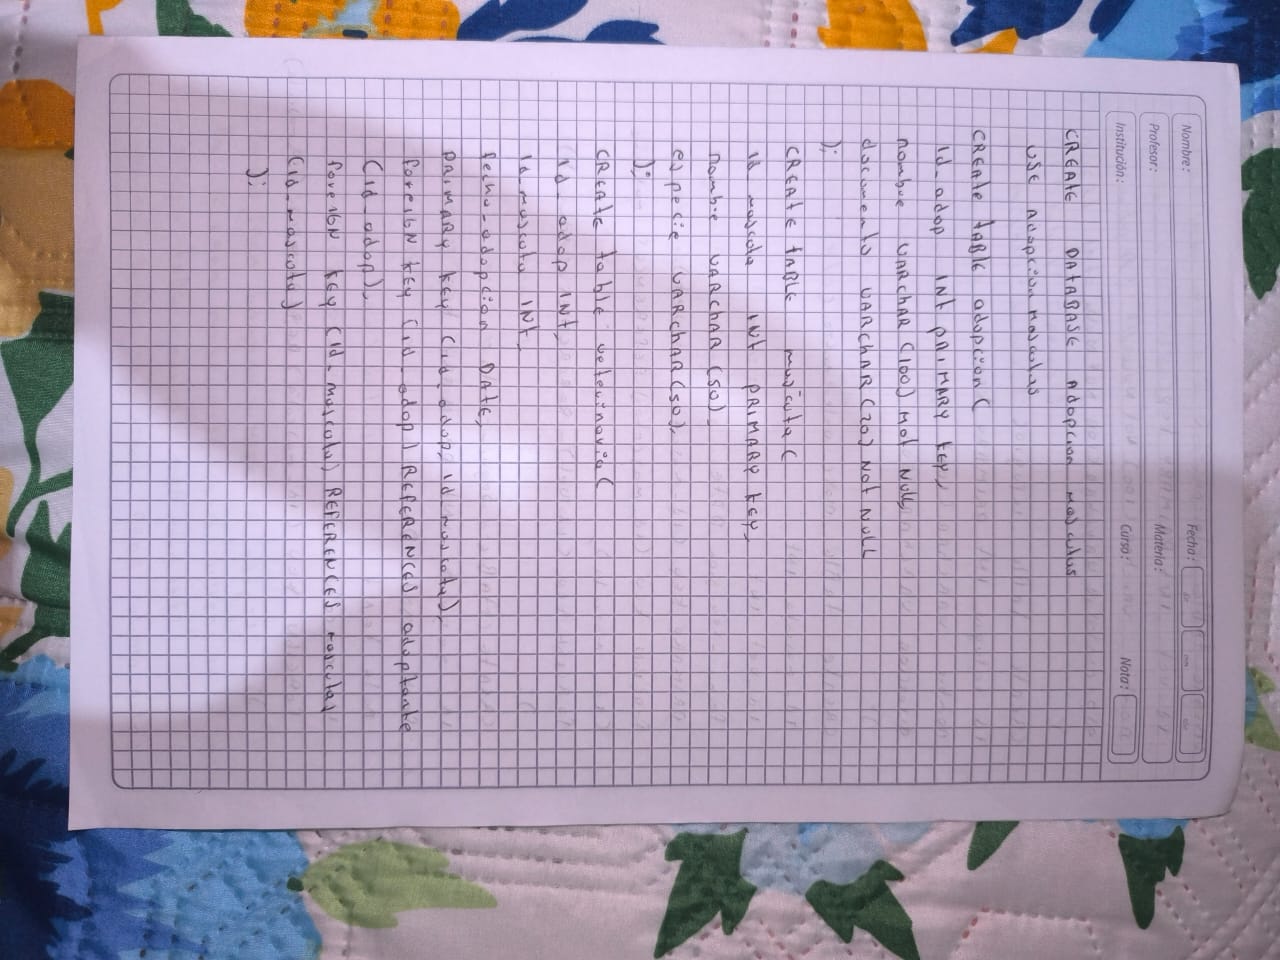 Nombre: Fecha: de en de
Profesor: Materia:
Institución: Curso: Nota:
CREATE DATABASE adopcion mascotas
USE adopcion mascotas
CREATE TABLE adopcion (
id_adop INT PRIMARY KEY,
nombre VARCHAR (100) not NULL,
documento VARCHAR (20) Not NULL
);
CREATE TABLE mascota (
id mascota INT PRIMARY KEY,
nombre VARCHAR (50),
especie VARCHAR (50),
);
CREATE table veterinaria (
id_adop INT,
id mascota INT,
fecha_adopcion DATE,
PRIMARY KEY (id_adop, id mascota),
foreign KEY (id_adop) REFERENCES adoptante
(id_adop),
foreign KEY (id_mascota) REFERENCES mascotas
(id_mascota)
);